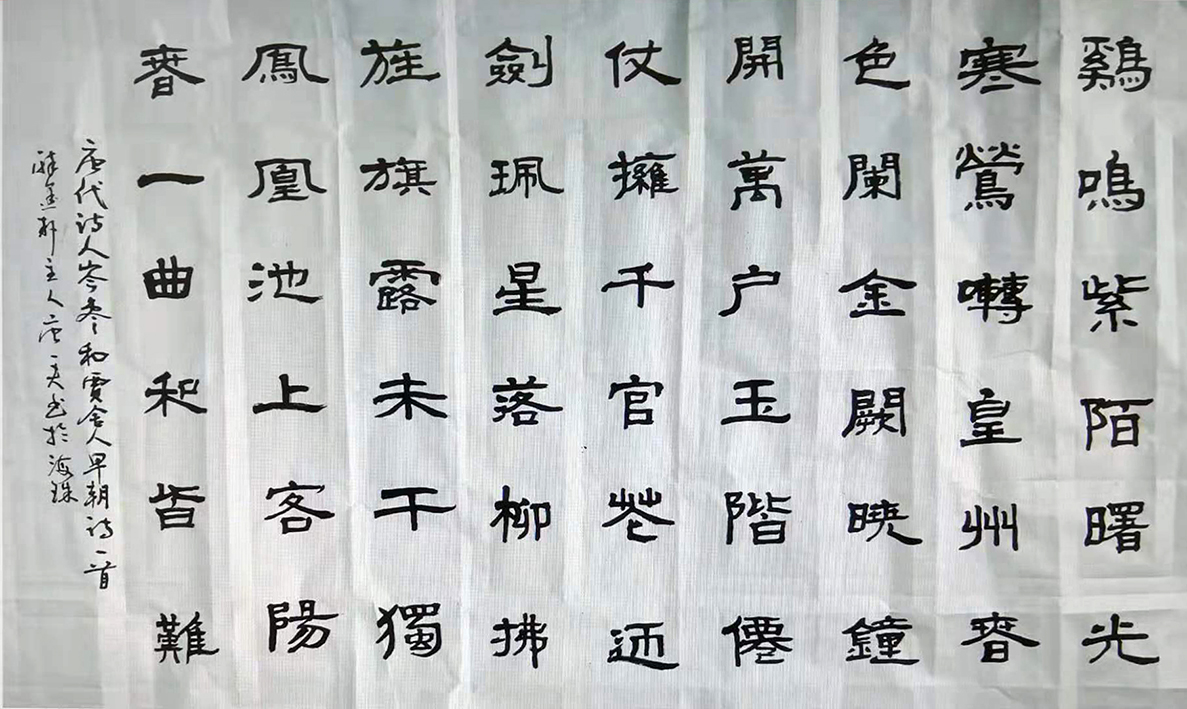 鷄鳴紫陌曙光
寒鶯囀皇州春
色闌金闕曉鐘
開萬户玉階僊
仗擁千官花迊
劍珮星落柳拂
旌旗露未干獨
鳳凰池上客陽
春一曲和皆難
唐代诗人岑參和賈舍人早朝诗一首
主人唐一夫书於海珠